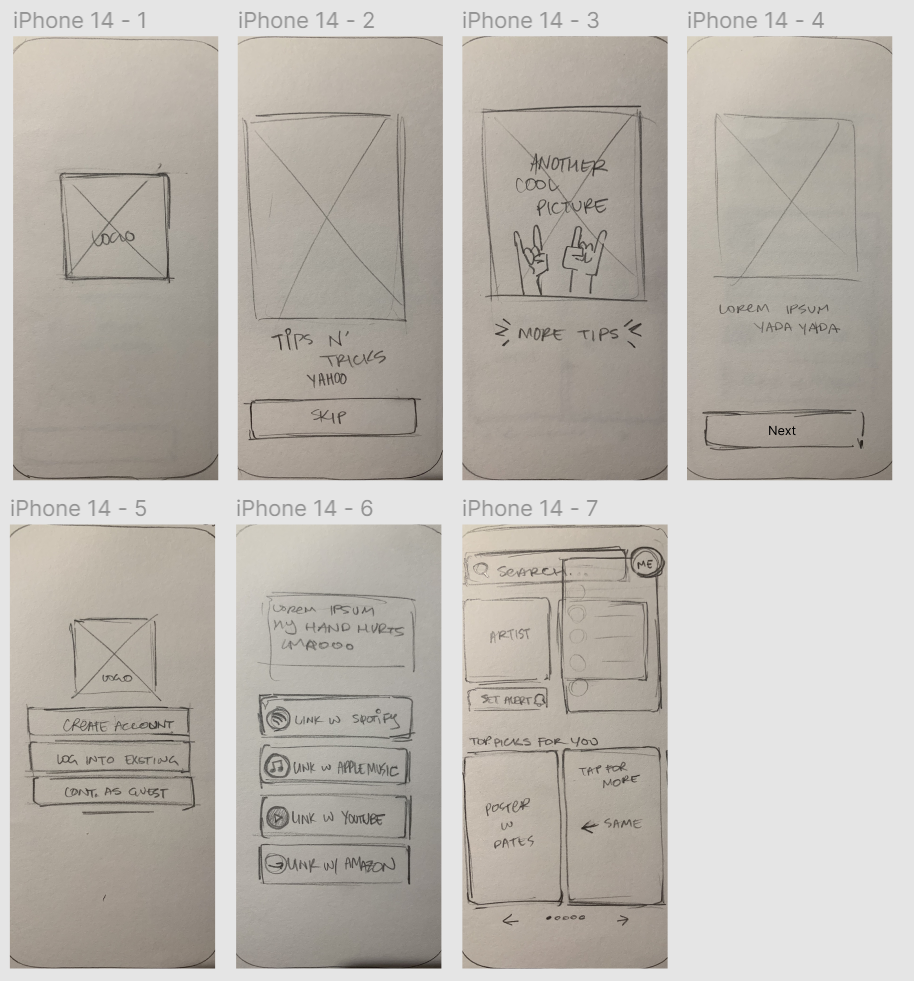 iPhone 14 - 1
LOGO
iPhone 14 - 2
TIPS N'
TRICKS
YAHOO
SKIP
iPhone 14 - 3
ANOTHER
COOL
PICTURE
MORE TIPS
iPhone 14 - 4
LOREM IPSUM
YADA YADA
Next
iPhone 14 - 5
LOGO
CREATE ACCOUNT
LOG INTO EXISTING
CONT. AS GUEST
iPhone 14 - 6
LOREM IPSUM
MY HAND HURTS
LMAOOO
LINK W SPOTIFY
LINK W APPLE MUSIC
LINK W YOUTUBE
LINK W/ AMAZON
iPhone 14 - 7
SEARCH...
ME
ARTIST
SET ALERT
TOP PICKS FOR YOU
POSTER
W
DATES
TAP FOR
MORE
← SAME
← →